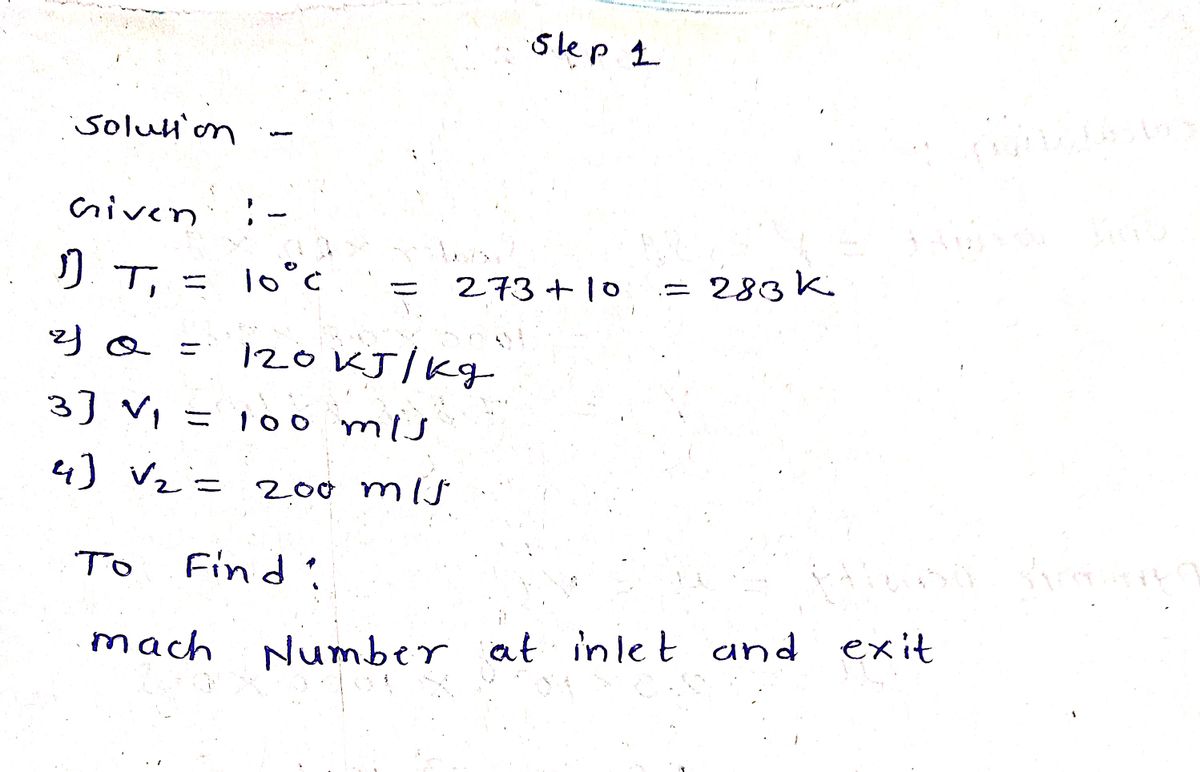 Step 1
Solution -
Given :-
1) T₁ = 10°C = 273+10 = 283 K
2) Q = 120 KJ/Kg
3] V₁ = 100 m/s
4] V₂ = 200 m/s
To Find :
mach Number at inlet and exit